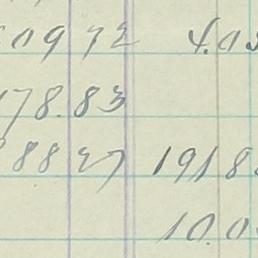 .09 72 4.0
178.83
88 27 1918
10.0